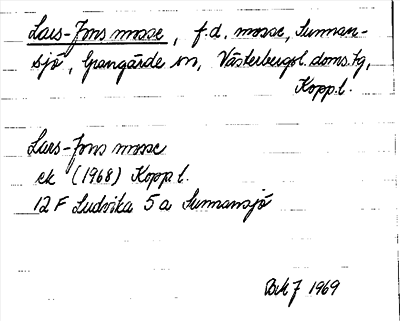 Lars-Jons mosse, f.d. mosse, Sunnan-
sjö, Grangärde sn, Västerbergsl. doms.tg,
Kopp.l.
Lars-Jons mosse
ek (1968) Kopp.l.
12 F Ludvika 5 a Sunnansjö
1969